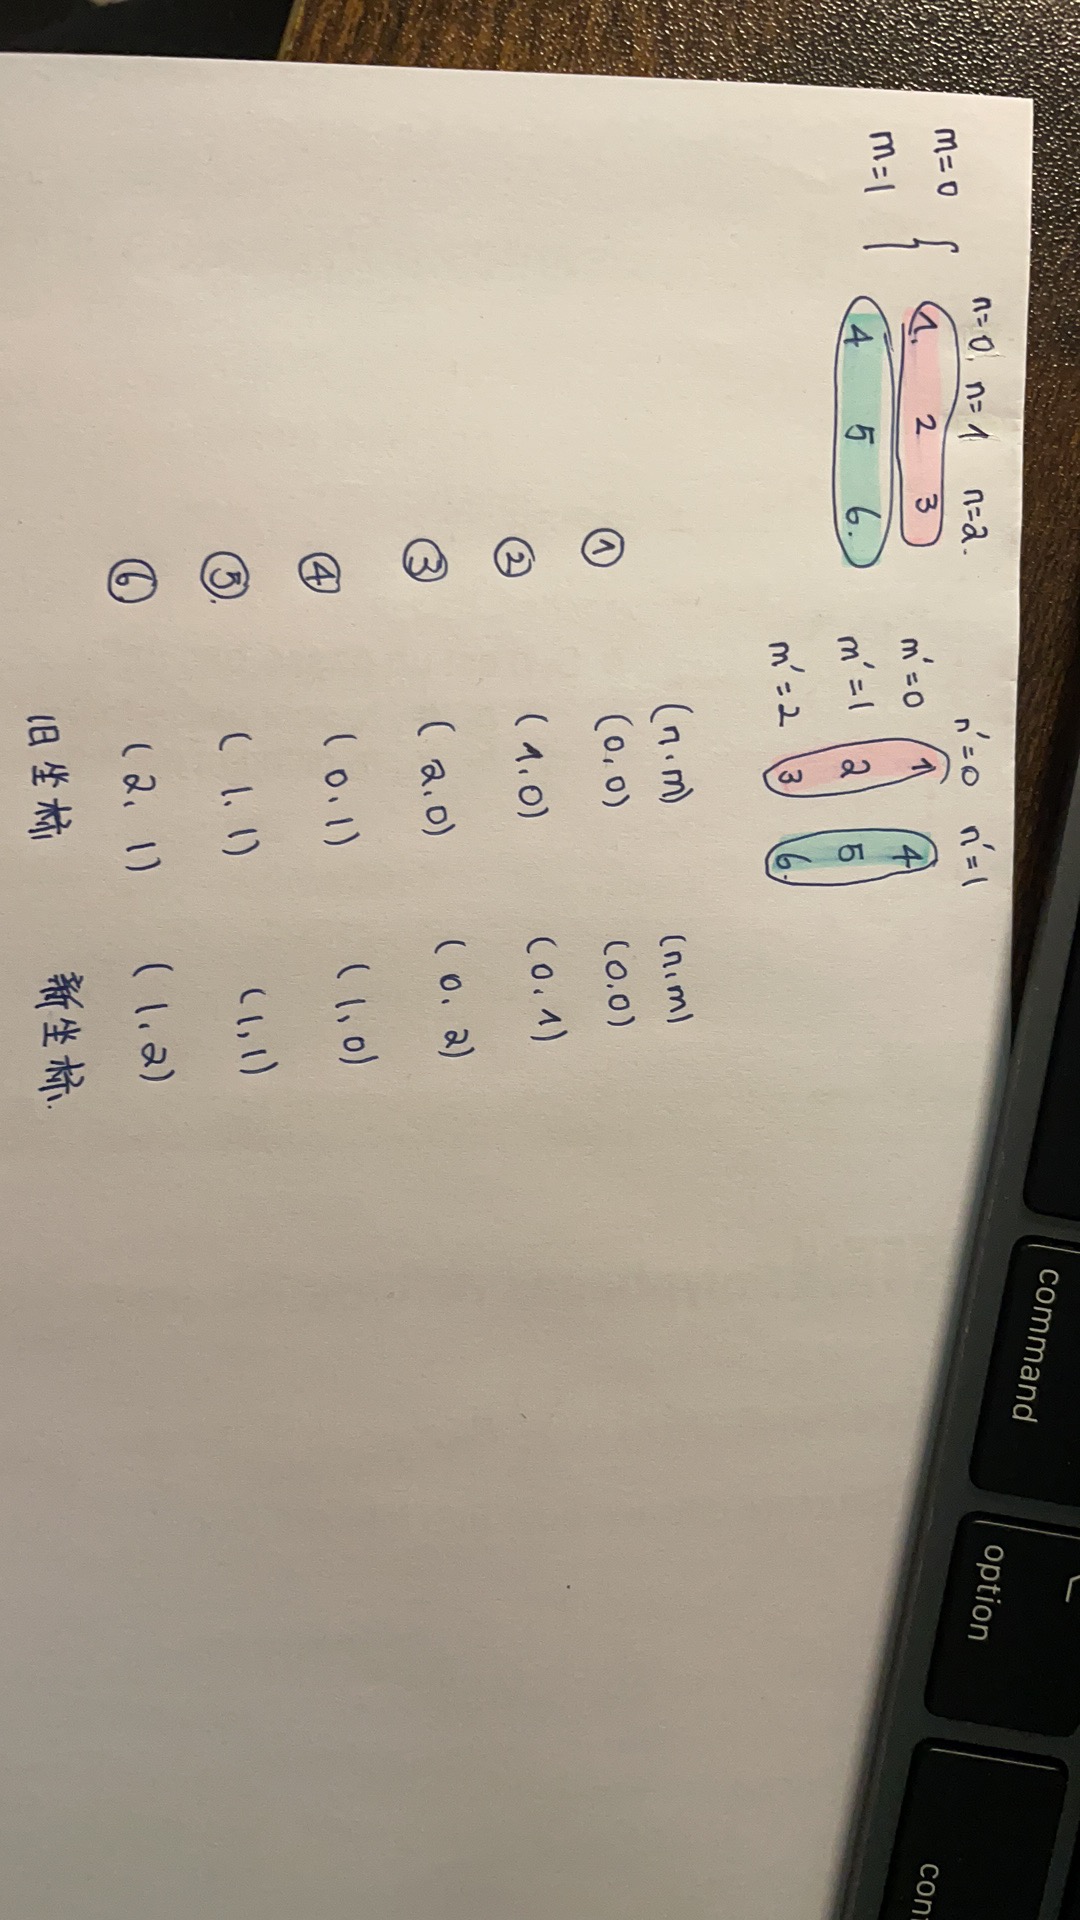 n=0, n=1 n=2.
m=0 { 1. 2 3
m=1 4 5 6.
n'=0 n'=1
m'=0 1 4
m'=1 2 5
m'=2 3 6.
(n,m) (n,m)
① (0,0) (0,0)
② (1,0) (0,1)
③ (2,0) (0,2)
④ (0,1) (1,0)
⑤. (1,1) (1,1)
⑥ (2,1) (1,2)
旧坐标 新坐标.
command
option